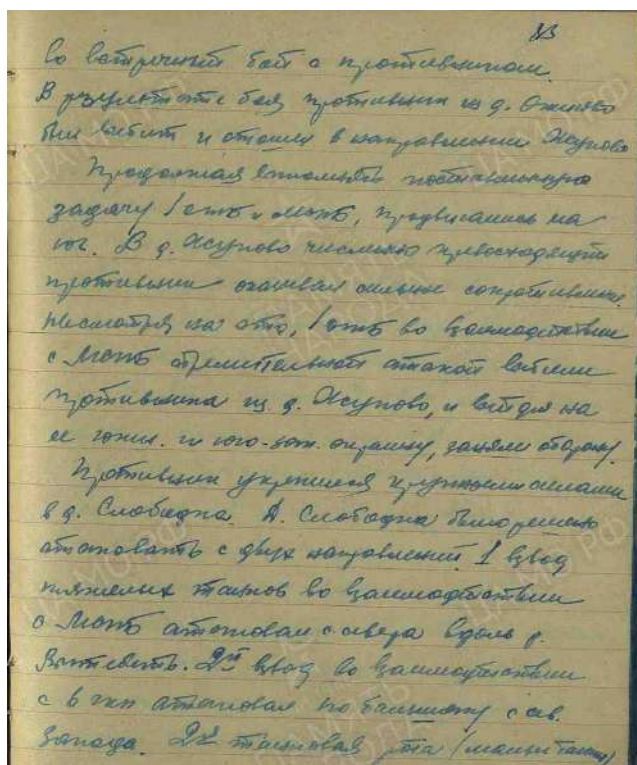 83
во встречный бой с противником.
В результате боя противник из д. Ожигово
был выбит и отошел в направлении Жуково
Продолжая выполнять поставленную
задачу 1 отб и МСПБ, продвигались на
юг. В д. Жуково численно превосходящий
противник оказывал сильное сопротивление.
Несмотря на это, 1 отб во взаимодействии
с МСПБ стремительной атакой выбили
противника из д. и выйдя на
ее южн. и юго-зап. окраину, заняли оборону.
Противник укрепился крупными силами
в д. Слободка. Д. Слободка было решено
атаковать с двух направлений. 1 взвод
тяжелых танков во взаимодействии
с МСПБ атаковал с севера вдоль р.
Вытебеть. 2й взвод во взаимодействии
с 6 гкп атаковал по большаку с сев.
запада. 2я танковая рота (малые танки)